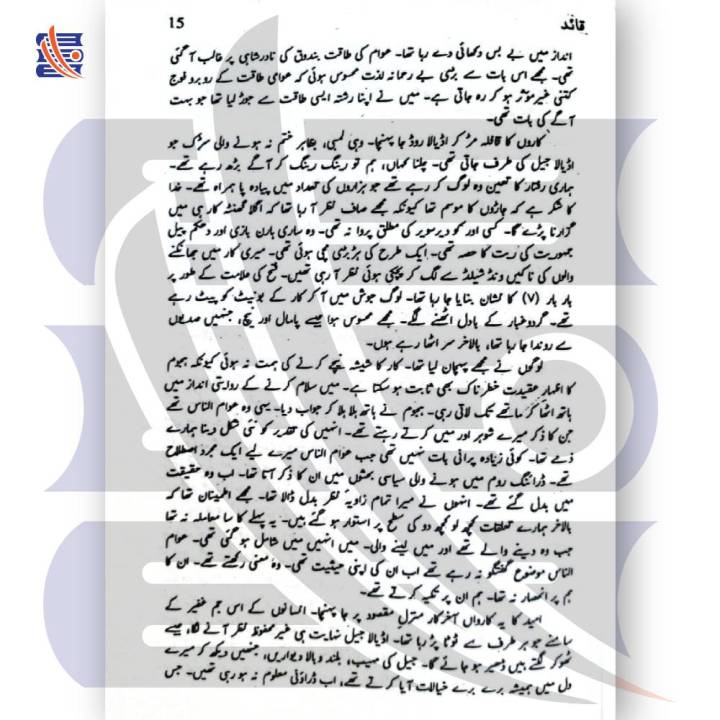 قائد 15
انداز میں بے بس دکھائی دے رہا تھا۔ عوام کی طاقت بندوق کی نادر شاہی پر غالب آ گئی
تھی۔ مجھے اس بات سے بڑی بے رحمانہ لذت محسوس ہوئی کہ عوامی طاقت کے روبرو فوج
کتنی غیر مؤثر ہو کر رہ جاتی ہے۔ میں نے اپنا رشتہ ایسی طاقت سے جوڑ لیا تھا جو بہت
آگے کی بات تھی۔
کاروں کا قافلہ مڑ کر اڈیالا روڈ جا پہنچا۔ وہی لمبی، بظاہر ختم نہ ہونے والی سڑک جو
اڈیالا جیل کی طرف جاتی تھی۔ چلنا کہاں، ہم تو رینگ رینگ کر آگے بڑھ رہے تھے۔
ہماری رفتار کا تعین وہ لوگ کر رہے تھے جو ہزاروں کی تعداد میں پیادہ پا ہمراہ تھے۔ خدا
کا شکر ہے کہ جاڑوں کا موسم تھا کیونکہ مجھے صاف نظر آ رہا تھا کہ اگلا گھنٹہ کار ہی میں
گزارنا پڑے گا۔ کسی اور کو دیر سویر کی مطلق پروا نہ تھی۔ وہ ساری ہارن بازی اور دھکم پیل
جمہوریت کی ریت کا حصہ تھی۔ ایک طرح کی ہڑبڑی مچی ہوئی تھی۔ میری کار میں جھانکنے
والوں کی ناکیں ونڈ شیلڈ سے لگ کر پچکی ہوئی نظر آ رہی تھیں۔ فتح کی علامت کے طور پر
بار بار (V) کا نشان بنایا جا رہا تھا۔ لوگ جوش میں آ کر کار کے بونیٹ کو پیٹ رہے
تھے۔ گرد و غبار کے بادل اٹھنے لگے۔ مجھے محسوس ہوا جیسے پامال اور نیچ، جنھیں صدیوں
سے روندا جا رہا تھا، بالآخر سر اٹھا رہے ہوں۔
لوگوں نے مجھے پہچان لیا تھا۔ کار کا شیشہ نیچے کرنے کی ہمت نہ ہوئی کیونکہ ہجوم
کا اظہارِ عقیدت خطرناک بھی ثابت ہو سکتا ہے۔ میں سلام کرنے کے روایتی انداز میں
ہاتھ اٹھا کر ماتھے تک لاتی رہی۔ ہجوم نے ہاتھ ہلا ہلا کر جواب دیا۔ یہی وہ عوام الناس تھے
جن کا ذکر میرے شوہر اور میں کرتے رہتے تھے۔ انھیں کی تقدیر کو نئی شکل دینا ہمارے
ذمے تھا۔ کوئی زیادہ پرانی بات نہیں تھی جب عوام الناس میرے لیے ایک مجرد اصطلاح
تھے۔ ڈرائنگ روم میں ہونے والی سیاسی بحثوں میں ان کا ذکر آتا تھا۔ اب وہ حقیقت
میں بدل گئے تھے۔ انہوں نے میرا تمام زاویۂ نظر بدل ڈالا تھا۔ مجھے اطمینان تھا کہ
بالآخر ہمارے تعلقات کچھ لو کچھ دو کی سطح پر استوار ہو گئے ہیں۔ یہ پہلے کا سا معاملہ نہ تھا
جب وہ دینے والے تھے اور میں لینے والی۔ میں انھیں میں شامل ہو گئی تھی۔ عوام
الناس موضوع گفتگو نہ رہے تھے اب ان کی اپنی حیثیت تھی۔ وہ معنی رکھتے تھے۔ ان کا
ہم پر انحصار نہ تھا۔ ہم ان پر تکیہ کرتے تھے۔
امید کا یہ کارواں آخرکار منزلِ مقصود پر جا پہنچا۔ انسانوں کے اس جم غفیر کے
سامنے جو ہر طرف سے ٹوٹا پڑ رہا تھا۔ اڈیالا جیل نہایت ہی غیر محفوظ نظر آنے لگا، جیسے
ٹھوکر لگتے ہیں ڈھیر ہو جائے گا۔ جیل کی مہیب، بلند و بالا دیواریں، جنھیں دیکھ کر میرے
دل میں ہمیشہ برے برے خیالات آیا کرتے تھے، اب ڈراؤنی معلوم نہ ہو رہی تھیں۔ جس